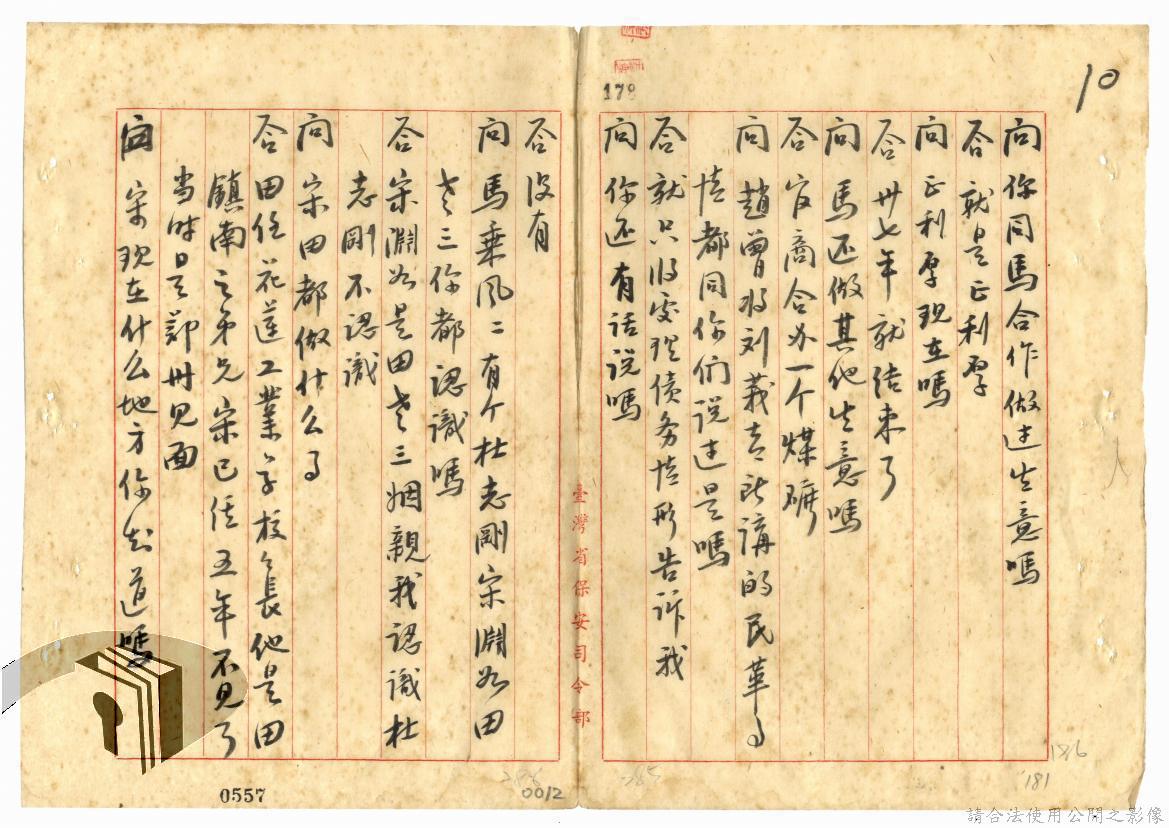 10
178
问 你同馬合作做过生意嗎
答 就是正利厚
问 正利厚現在嗎
答 卅七年就结束了
问 馬还做其他生意嗎
答 官商合办一个煤礦
问 趙曾将刘莪青所講的民革事
情都同你们说过是嗎
答 就只将處理债务情形告诉我
问 你还有话说嗎
臺灣省保安司令部
答 没有
问 馬乘风二有个杜志剛宋淵如田
老三你都認識嗎
答 宋淵如是田老三姻親我認識杜
志剛不認識
问 宋田都做什么事
答 田任花蓮工業学校校長他是田
鎮南之弟兄宋已经五年不見了
当时是鄭州見面
问 宋现在什么地方你知道嗎
0557
0012
286
285
186
181
請合法使用公開之影像